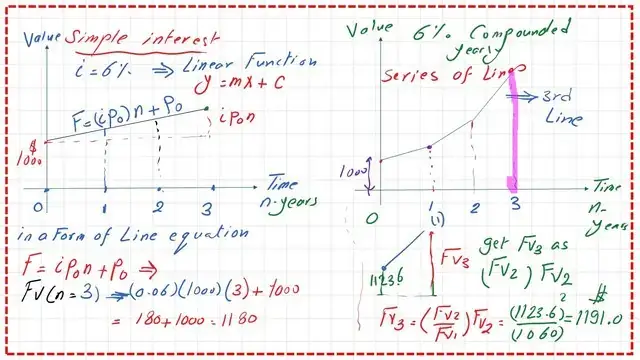 Value Simple interest
i = 6% ⇒ Linear Function
y = mx + C
F = (iP₀)n + P₀
iP₀n
1000 $
Time
n-years
0 1 2 3
in a Form of Line equation
F = iP₀n + P₀ ⇒
FV(n = 3) → (0.06)(1000)(3) + 1000
= 180 + 1000 = 1180
Value 6% Compounded
yearly
Series of Lines
⇒ 3rd
Line
1000
Time
n-
years
0 1 2 3
(1)
11236
FV₃
get FV₃ as
(FV₂) FV₂
FV₃ = (FV₂/FV₁) FV₂ = (1123.6)²/(1060) = 1191.0 $